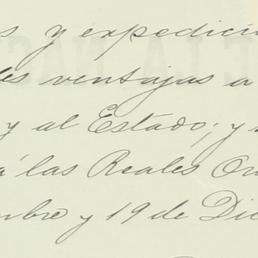 s y expedici
les ventajas a
y al Estado; y
á las Reales Or
mbre y 19 de Dic